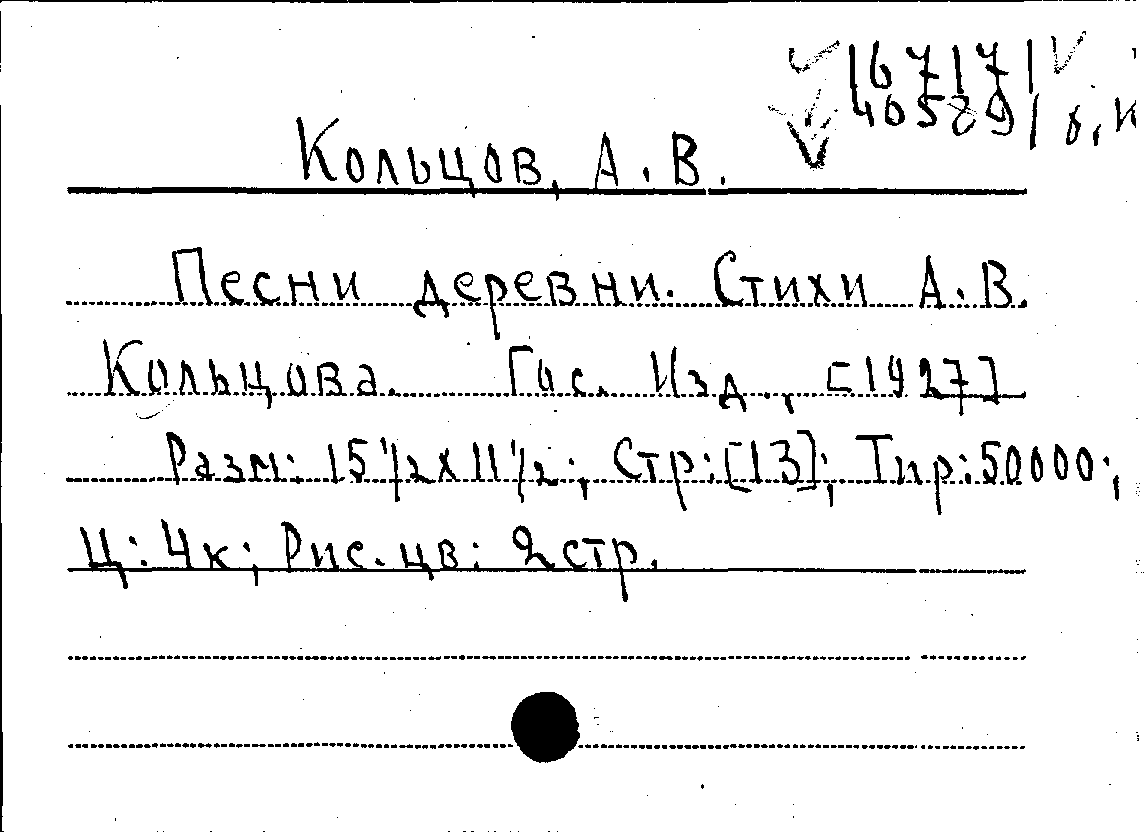 167171
405891 б.к
Кольцов, А. В.
Песни деревни. Стихи А. В.
Кольцова. Гос. Изд., [1927]
Разм: 15 1/2 х 11 1/2; Стр: [13]; Тир: 50000;
Ц: 4к; Рис. цв: 2 стр.